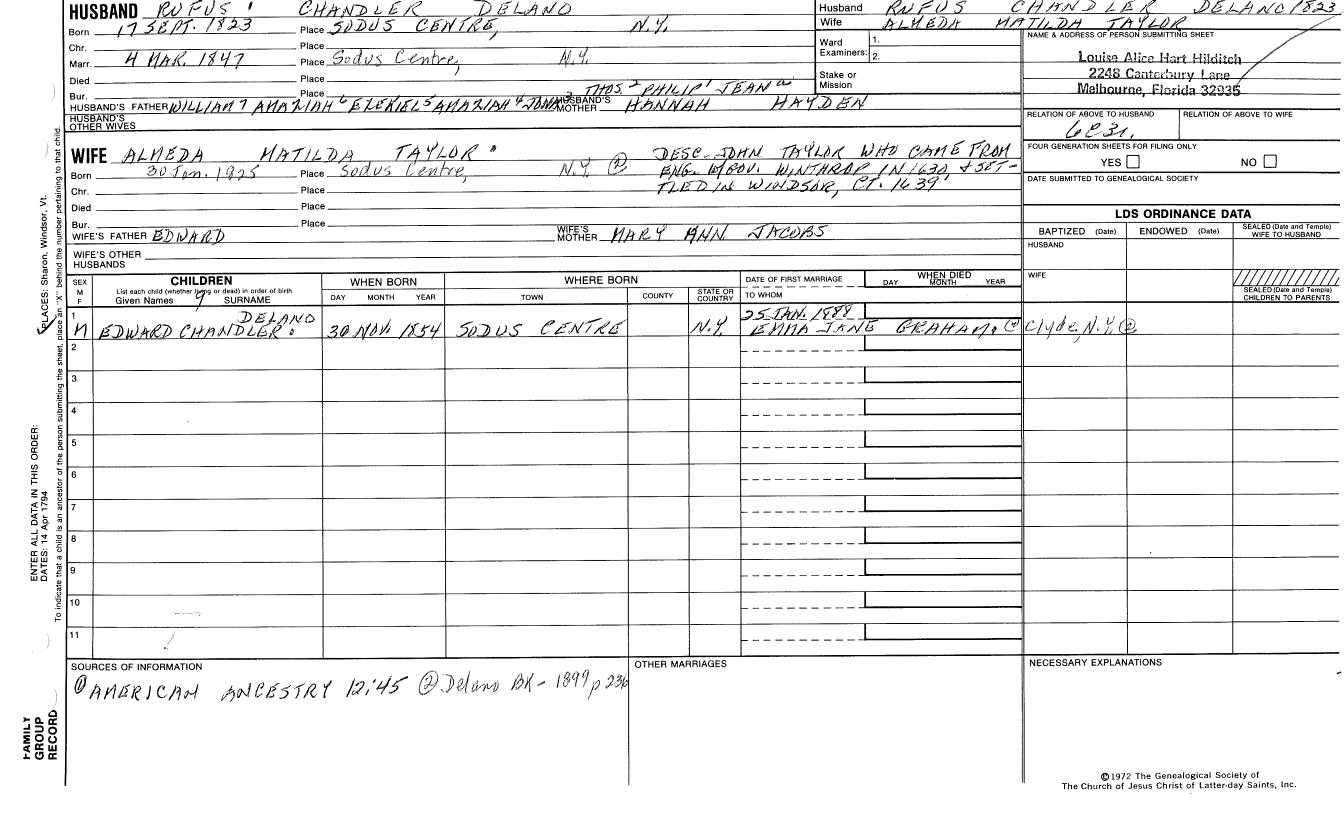 HUSBAND RUFUS ' CHANDLER DELANO
Born 17 SEPT. 1823 Place SODUS CENTRE, N.Y.
Chr. Place
Marr. 4 MAR. 1847 Place Sodus Centre, N.Y.
Died Place
Bur. Place THOS. 2 PHILIP 1 JEAN a
HUSBAND'S FATHER WILLIAM 7 AMAZIAH 6 EZEKIEL 5 AMAZIAH 4 JONA. 3 HUSBAND'S MOTHER HANNAH HAYDEN
HUSBAND'S OTHER WIVES
WIFE ALMEDA MATILDA TAYLOR
Born 30 Jan. 1925 Place Sodus Centre, N.Y. ②
Chr. Place
Died Place
Bur. Place
DESC. JOHN TAYLOR WHO CAME FROM
ENG. W/GOV. WINTHROP IN 1630 & SET-
TLED IN WINDSOR, CT. 1639
WIFE'S FATHER EDWARD WIFE'S MOTHER MARY ANN JACOBS
WIFE'S OTHER HUSBANDS
Husband RUFUS CHANDLER DELANO 1823
Wife ALMEDA MATILDA TAYLOR
Ward Examiners: 1.
2.
Stake or Mission
NAME & ADDRESS OF PERSON SUBMITTING SHEET
Louise Alice Hart Hilditch
2248 Canterbury Lane
Melbourne, Florida 32935
RELATION OF ABOVE TO HUSBAND RELATION OF ABOVE TO WIFE
6C3r.
FOUR GENERATION SHEETS FOR FILING ONLY
YES NO
DATE SUBMITTED TO GENEALOGICAL SOCIETY
LDS ORDINANCE DATA
BAPTIZED (Date) ENDOWED (Date) SEALED (Date and Temple) WIFE TO HUSBAND
HUSBAND
WIFE
SEALED (Date and Temple) CHILDREN TO PARENTS
SEX M F
CHILDREN
List each child (whether living or dead) in order of birth
Given Names SURNAME
WHEN BORN
DAY MONTH YEAR
WHERE BORN
TOWN COUNTY STATE OR COUNTRY
DATE OF FIRST MARRIAGE
TO WHOM
WHEN DIED
DAY MONTH YEAR
1 DELANO 25 JAN. 1888
M EDWARD CHANDLER 30 NOV. 1854 SODUS CENTRE N.Y. EMMA JANE GRAHAM ② Clyde, N.Y. ②
2
3
4
5
6
7
8
9
10
11
SOURCES OF INFORMATION
① AMERICAN ANCESTRY 12:45 ② Delano BK - 1899 p 236
OTHER MARRIAGES
NECESSARY EXPLANATIONS
©1972 The Genealogical Society of
The Church of Jesus Christ of Latter-day Saints, Inc.
ENTER ALL DATA IN THIS ORDER:
DATES: 14 Apr 1794
PLACES: Sharon, Windsor, Vt.
To indicate that a child is an ancestor of the person submitting the sheet, place an "X" behind the number pertaining to that child.
FAMILY
GROUP
RECORD